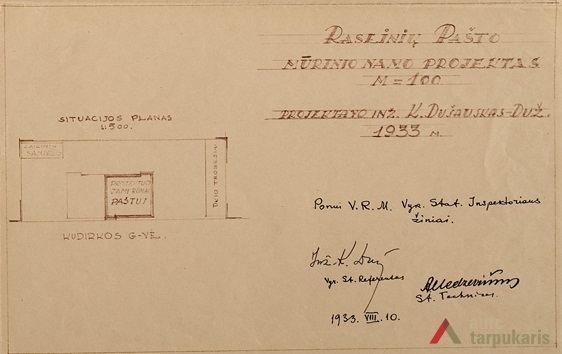 RASEINIŲ PAŠTO
MŪRINIO NAMO PROJEKTAS
M=100
PROJEKTAVO INŽ. K. DUŠAUSKAS-DUŽ.
1933 M.
SITUACIJOS PLANAS
1:500.
PAŠTUI
KUDIRKOS G-VĖ.
Ponui V.R.M. Vyr. Stat. Inspektoriaus
žiniai.
Inž. K. Duž
Vyr. St. Referentas
St. Technikas.
1933. VIII. 10.
tarpukaris